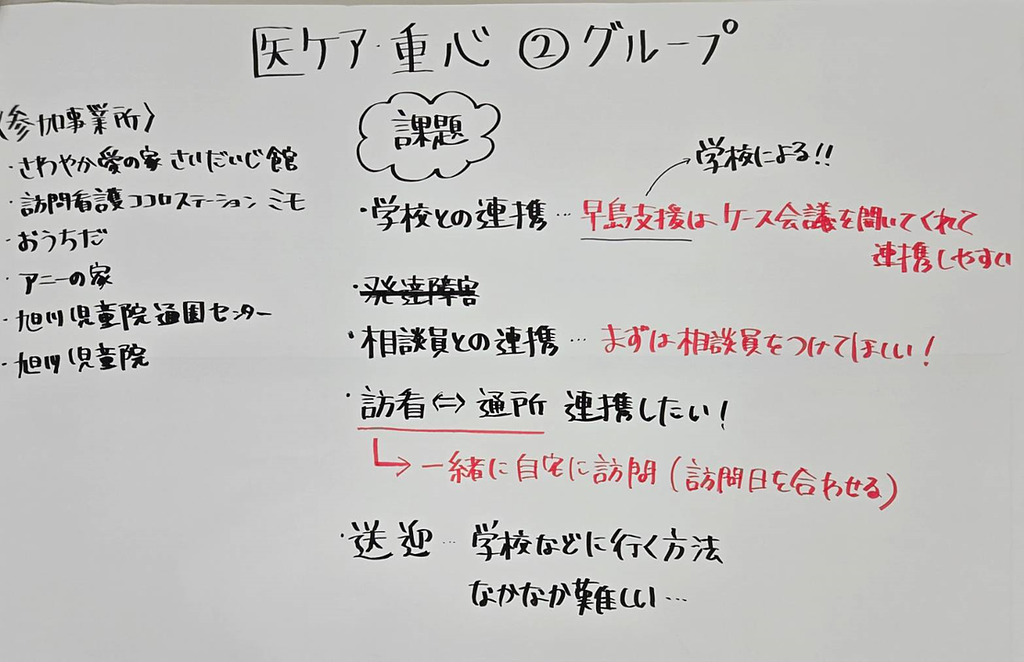 医ケア・重心 ②グループ
〈参加事業所〉
・さわやか愛の家 さいだいじ館
・訪問看護ココロステーション ミモ
・おうちだ
・アニーの家
・旭川児童院通園センター
・旭川児童院
課題
学校による!!
・学校との連携…早島支援は ケース会議を開いてくれて
連携しやすい
・発達障害
・相談員との連携…まずは相談員をつけてほしい!
・訪看⇔通所 連携したい!
→一緒に自宅に訪問(訪問日を合わせる)
・送迎…学校などに行く方法
なかなか難しい…